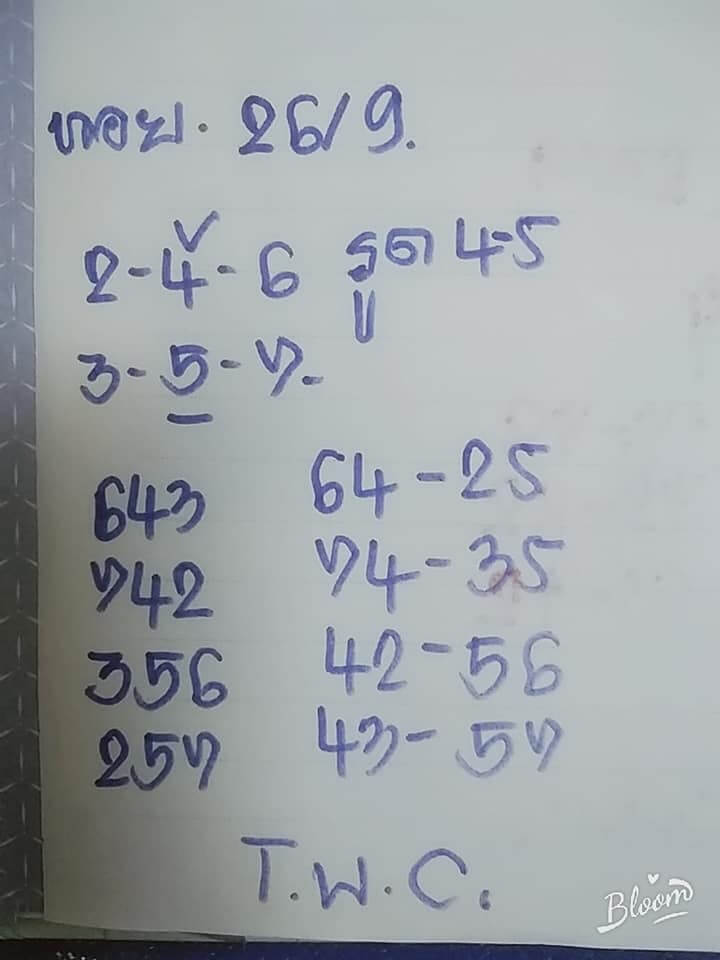 หอย. 26/9.
2-4-6 รูด 4-5
3-5-7.
643 64-25
742 74-35
356 42-56
257 43-57
T.W.C.
Bloom